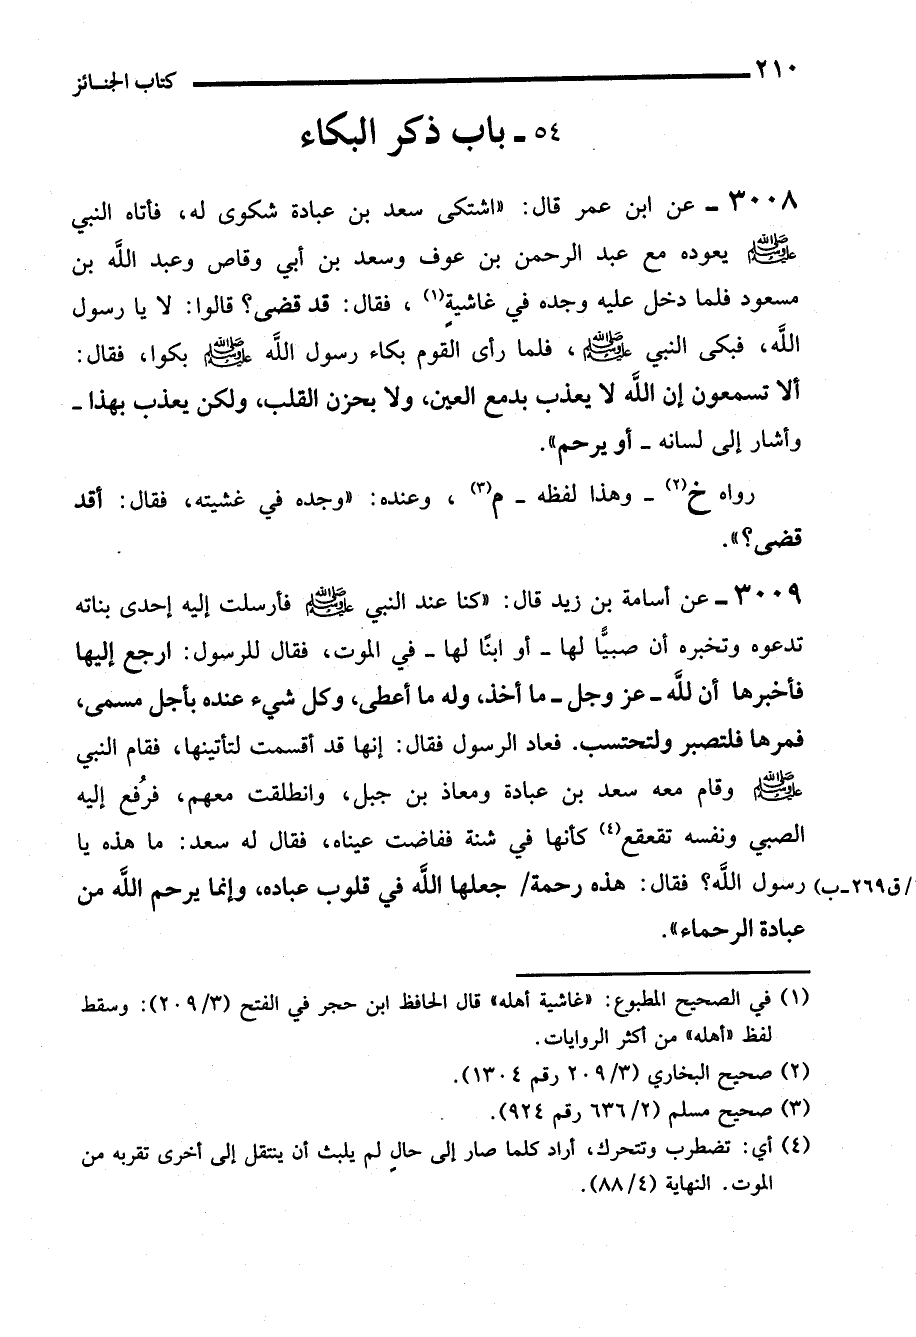 ٢١٠ كتاب الجنـائز
٥٤ ـ باب ذكر البكاء
٣٠٠٨ ـ عن ابن عمر قال: «اشتكى سعد بن عبادة شكوى له، فأتاه النبي
ﷺ يعوده مع عبد الرحمن بن عوف وسعد بن أبي وقاص وعبد الله بن
مسعود فلما دخل عليه وجده في غاشيةٍ(١) ، فقال: قد قضى؟ قالوا: لا يا رسول
اللَّه، فبكى النبي ﷺ ، فلما رأى القوم بكاء رسول اللَّه ﷺ بكوا، فقال:
ألا تسمعون إن اللَّه لا يعذب بدمع العين، ولا بحزن القلب، ولكن يعذب بهذا ـ
وأشار إلى لسانه ـ أو يرحم».
رواه خ(٢) ـ وهذا لفظه ـ م(٣) ، وعنده: «وجده في غشيته، فقال: أقد
قضى؟».
٣٠٠٩ ـ عن أسامة بن زيد قال: «كنا عند النبي ﷺ فأرسلت إليه إحدى بناته
تدعوه وتخبره أن صبيًّا لها ـ أو ابنًا لها ـ في الموت، فقال للرسول: ارجع إليها
فأخبرها أن للَّه ـ عز وجل ـ ما أخذ، وله ما أعطى، وكل شيء عنده بأجل مسمى،
فمرها فلتصبر ولتحتسب. فعاد الرسول فقال: إنها قد أقسمت لتأتينها، فقام النبي
ﷺ وقام معه سعد بن عبادة ومعاذ بن جبل، وانطلقت معهم، فرُفع إليه
الصبي ونفسه تقعقع(٤) كأنها في شنة ففاضت عيناه، فقال له سعد: ما هذه يا
رسول اللَّه؟ فقال: هذه رحمة/ جعلها اللَّه في قلوب عباده، وإنما يرحم اللَّه من
/ق٢٦٩ـب)
عبادة الرحماء».
(١) في الصحيح المطبوع: «غاشية أهله» قال الحافظ ابن حجر في الفتح (٢٠٩/٣): وسقط
لفظ «أهله» من أكثر الروايات.
(٢) صحيح البخاري (٢٠٩/٣ رقم ١٣٠٤).
(٣) صحيح مسلم (٦٣٦/٢ رقم ٩٢٤).
(٤) أي: تضطرب وتتحرك، أراد كلما صار إلى حالٍ لم يلبث أن ينتقل إلى أخرى تقربه من
الموت. النهاية (٨٨/٤).